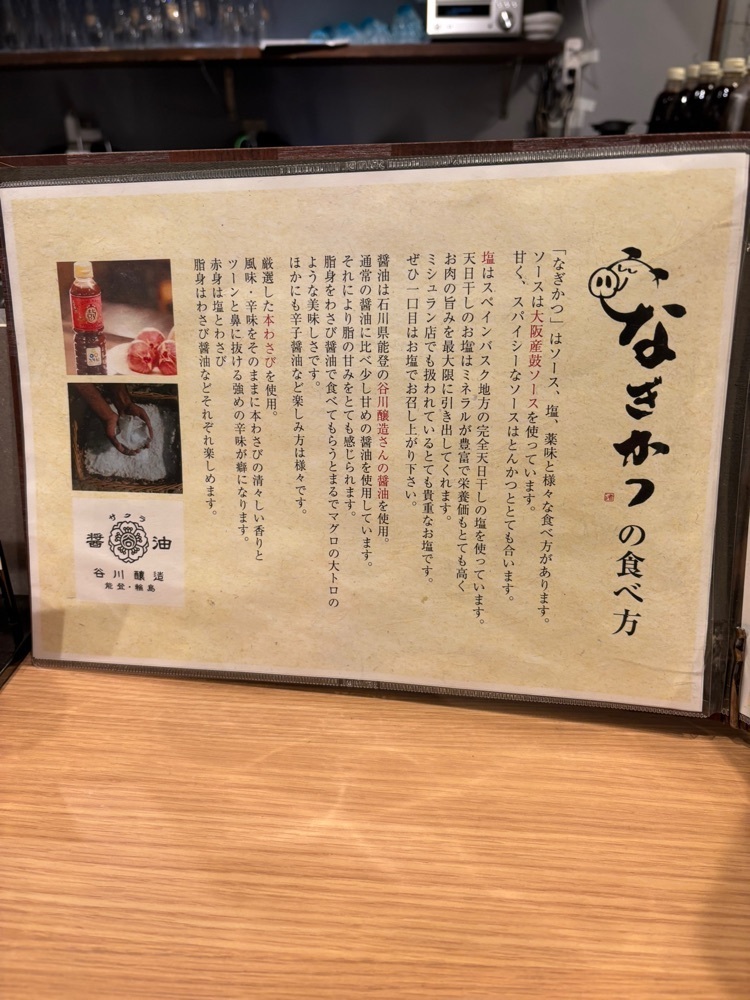 なぎかつの食べ方
「なぎかつ」はソース、塩、薬味と様々な食べ方があります。
ソースは大阪産鼓ソースを使っています。
甘く、スパイシーなソースはとんかつととても合います。
塩はスペインバスク地方の完全天日干しの塩を使っています。
天日干しのお塩はミネラルが豊富で栄養価もとても高く
お肉の旨みを最大限に引き出してくれます。
ミシュラン店でも扱われているとても貴重なお塩です。
ぜひ一口目はお塩でお召し上がり下さい。
醬油は石川県能登の谷川醸造さんの醬油を使用。
通常の醬油に比べ少し甘めの醬油を使用しています。
それにより脂の甘みをとても感じられます。
脂身をわさび醬油で食べてもらうとまるでマグロの大トロの
ような美味しさです。
ほかにも辛子醬油など楽しみ方は様々です。
厳選した本わさびを使用。
風味・辛味をそのままに本わさびの清々しい香りと
ツーンと鼻に抜ける強めの辛味が癖になります。
赤身は塩とわさび
脂身はわさび醬油などそれぞれ楽しめます。
サクラ
醬油
谷川醸造
能登・輪島